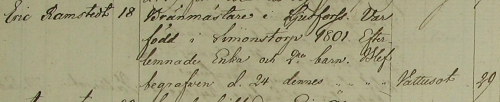 Eric Ramstedt 18 Brännmästare i Ljusfors. Var
född i Simonstorp 1801 Efter
lemnade Enka och 2ne barn. Blef
begrafven d. 24 dennes " " " Vattusot. 29